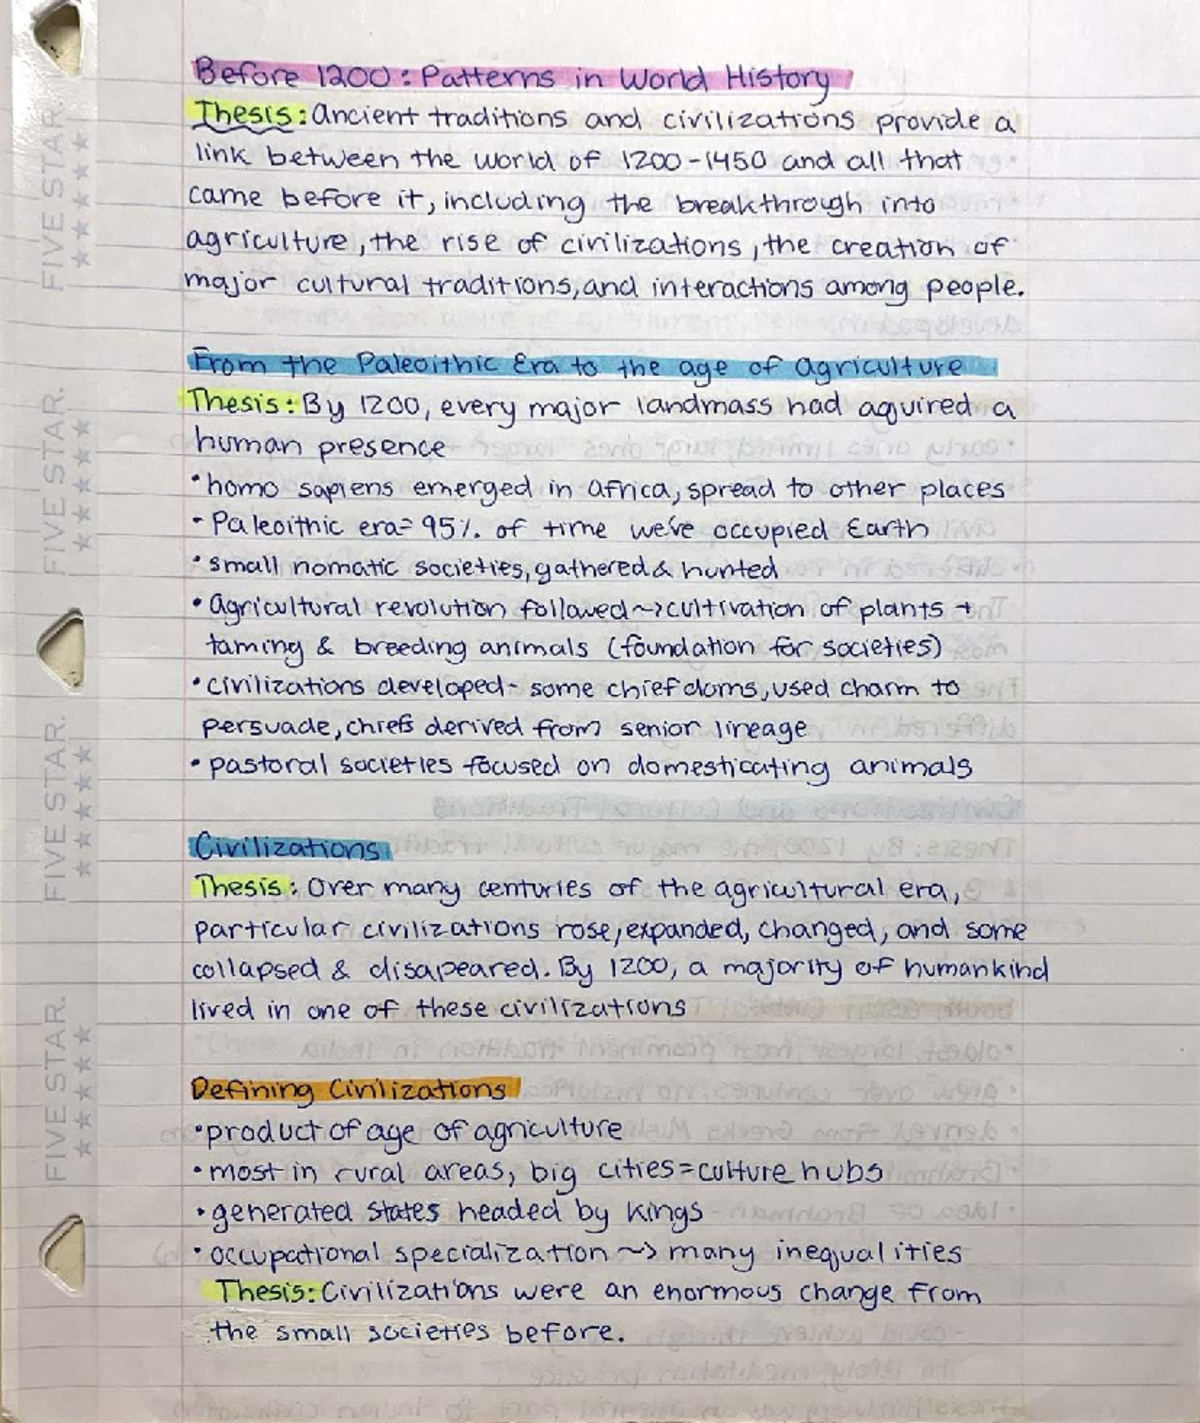 Before 1200: Patterns in World History
Thesis: Ancient traditions and civilizations provide a
link between the world of 1200-1450 and all that
came before it, including the breakthrough into
agriculture, the rise of civilizations, the creation of
major cultural traditions, and interactions among people.
From the Paleoithic Era to the age of Agriculture
Thesis: By 1200, every major landmass had aquired a
human presence
•homo sapiens emerged in Africa, spread to other places
- Paleoithic era= 95% of time we've occupied Earth
•small nomatic societies, gathered & hunted
•Agricultural revolution followed~>cultivation of plants +
taming & breeding animals (foundation for societies)
•civilizations developed- some chiefdoms, used charm to
persuade, chiefs derived from senior lineage
•pastoral societies focused on domesticating animals
Civilizations
Thesis: Over many centuries of the agricultural era,
particular civilizations rose, expanded, changed, and some
collapsed & disapeared. By 1200, a majority of humankind
lived in one of these civilizations
Defining Civilizations
•product of age of agriculture
•most in rural areas, big cities=culture hubs
•generated states headed by kings
•occupational specialization ~> many inequalities
Thesis: Civilizations were an enormous change from
the small societies before.
FIVE STAR.
FIVE STAR.
FIVE STAR.
FIVE STAR.